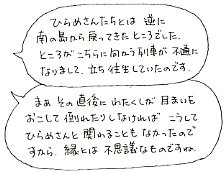 ひらめさんたちとは 逆に
南の島から戻ってきたところでした。
ところがこちらに向かう列車が不通に
なりまして、立ち往生していたのです。
まぁ その直後に わたくしが 目まいを
おこして 倒れたりしなければ こうして
ひらめさんと 関れることも なかったので
すから、縁とは 不思議なものですね。